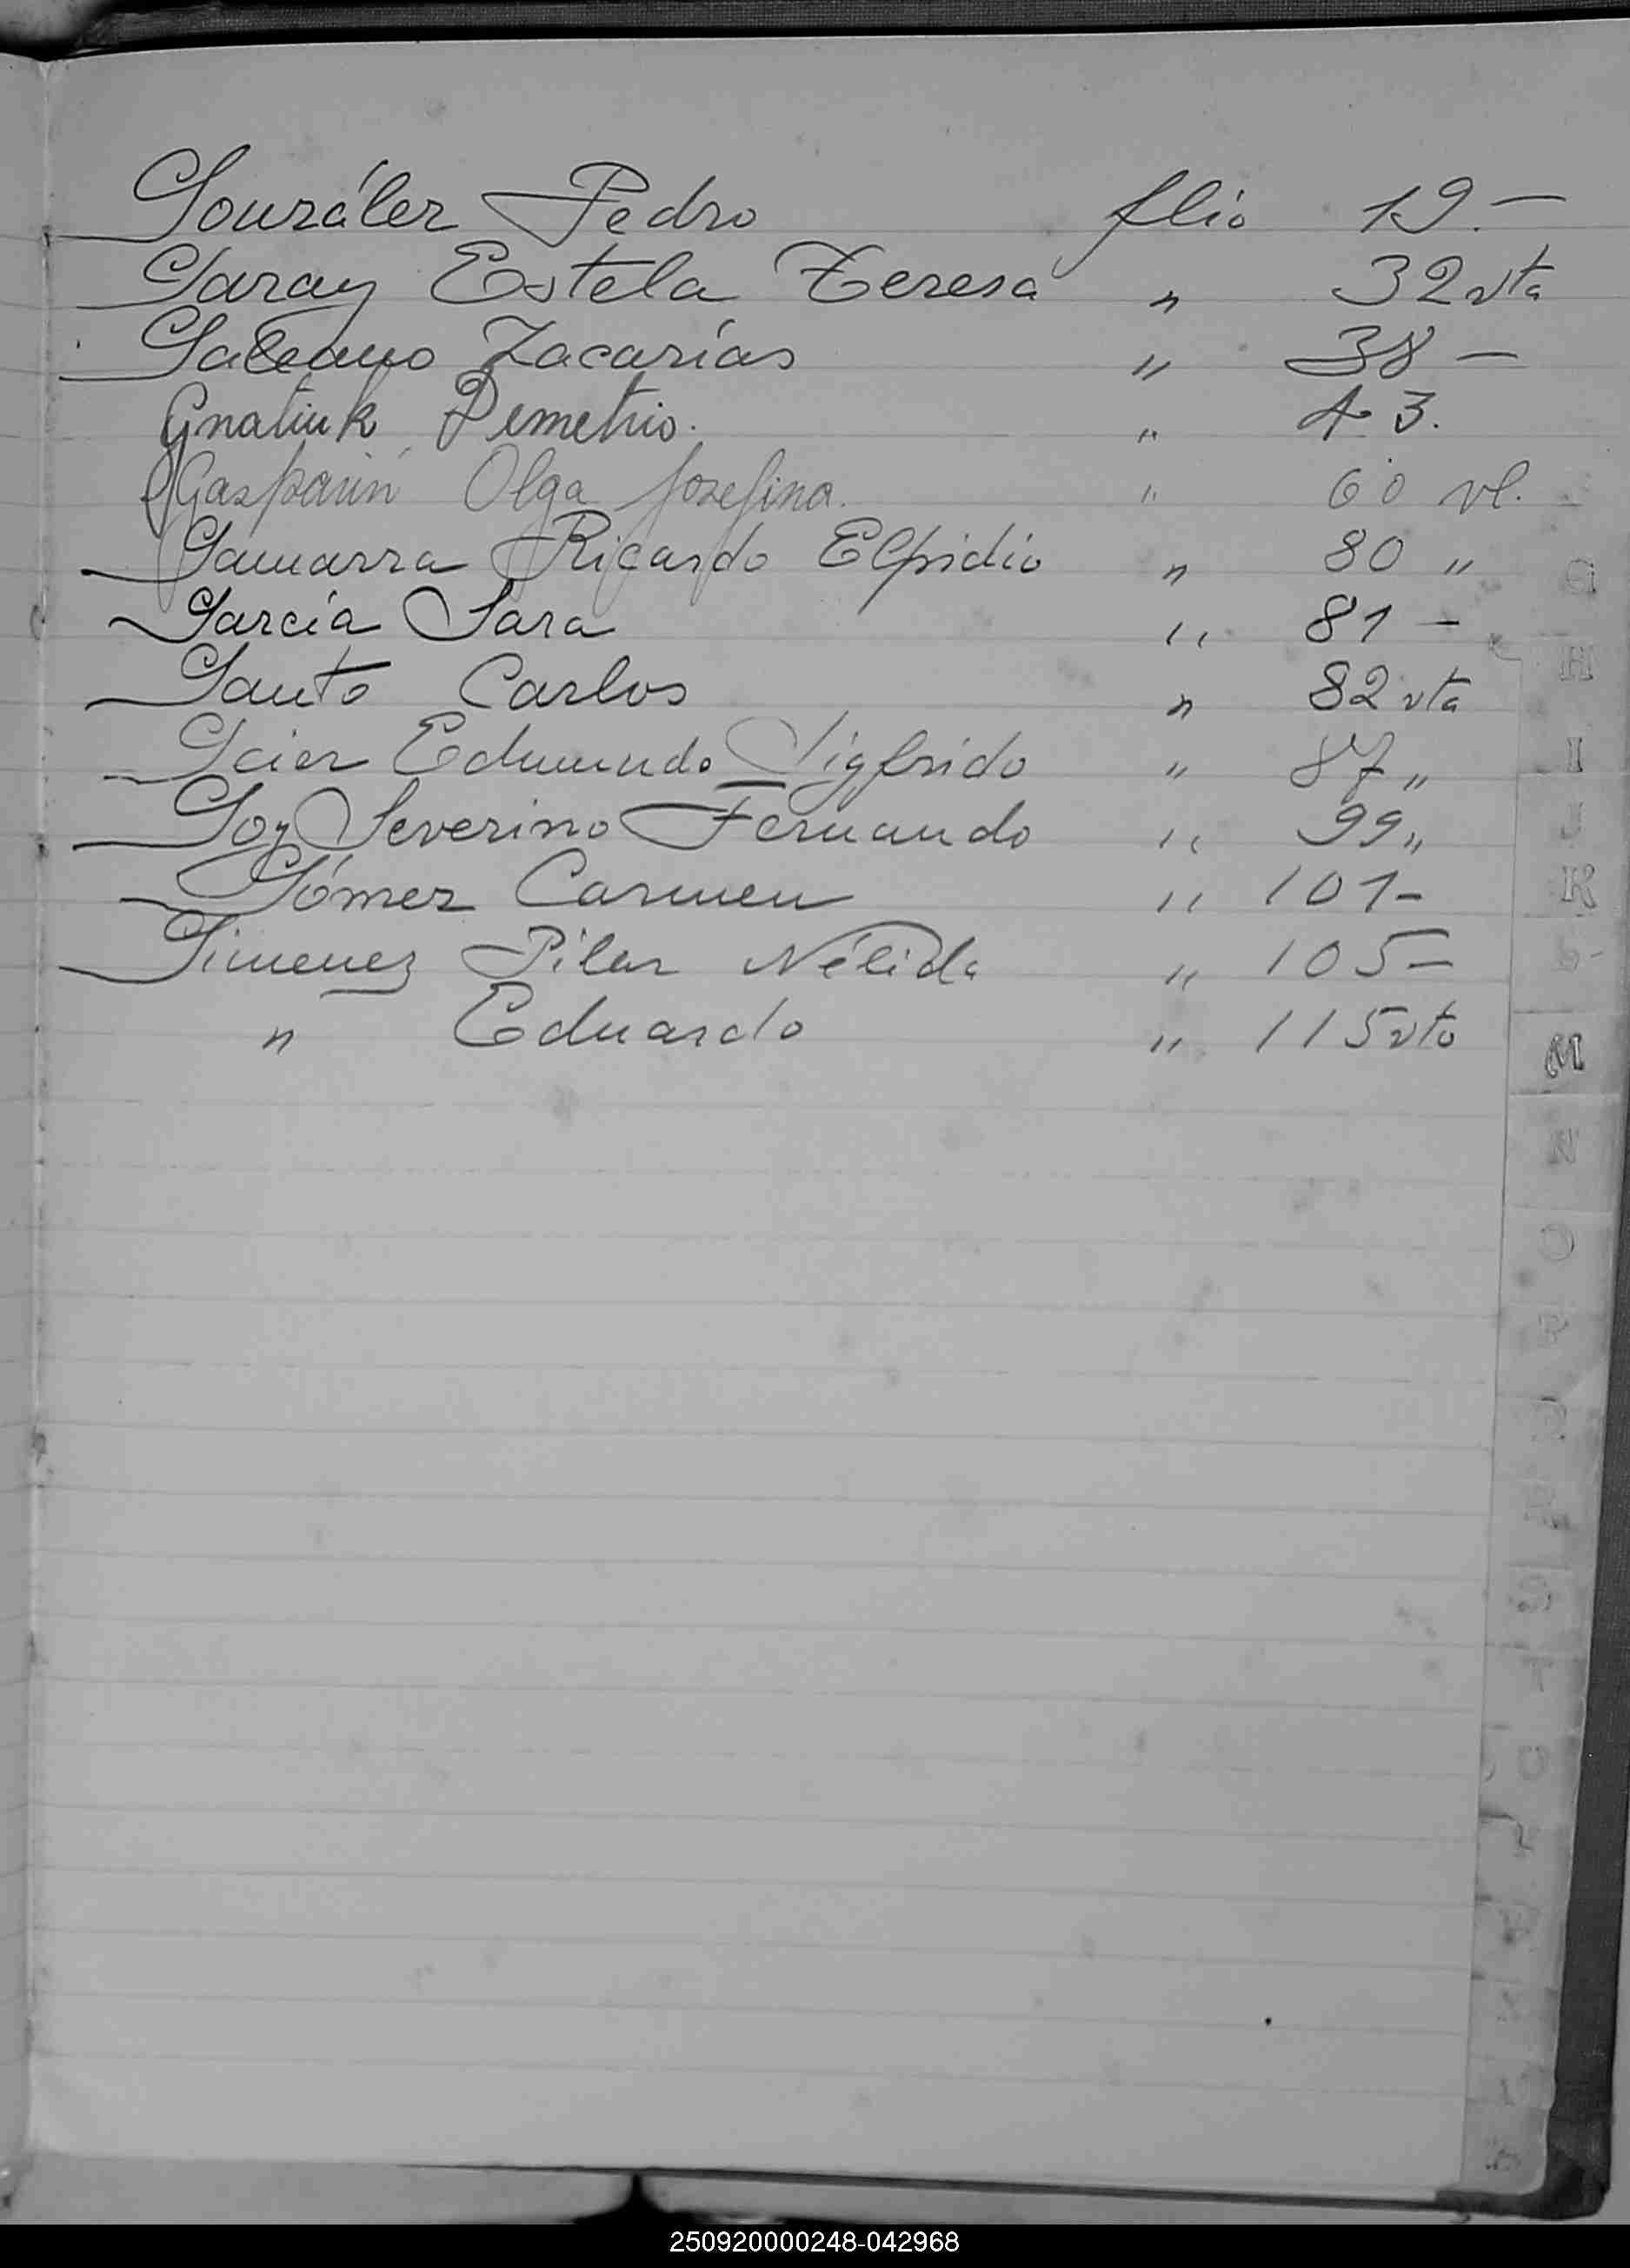 González Pedro flio 19.—
Garay Estela Teresa " 32 vta
Galeano Zacarías " 38 —
Gnatiuk Demetrio. " 43.
Gasparin Olga Josefina. " 60 vl.
Gamarra Ricardo Elpidio " 80 "
García Sara " 81 —
Gauto Carlos " 82 vta
Geier Edmundo Sigfrido " 87 "
Goy Severino Fernando " 99 "
Gómez Carmen " 101 -
Gimenez Pilar Nélida " 105 —
" Eduardo " 115 vto
G
H
I
J
K
M
N
O
P
Q
R
S
T
U
250920000248-042968